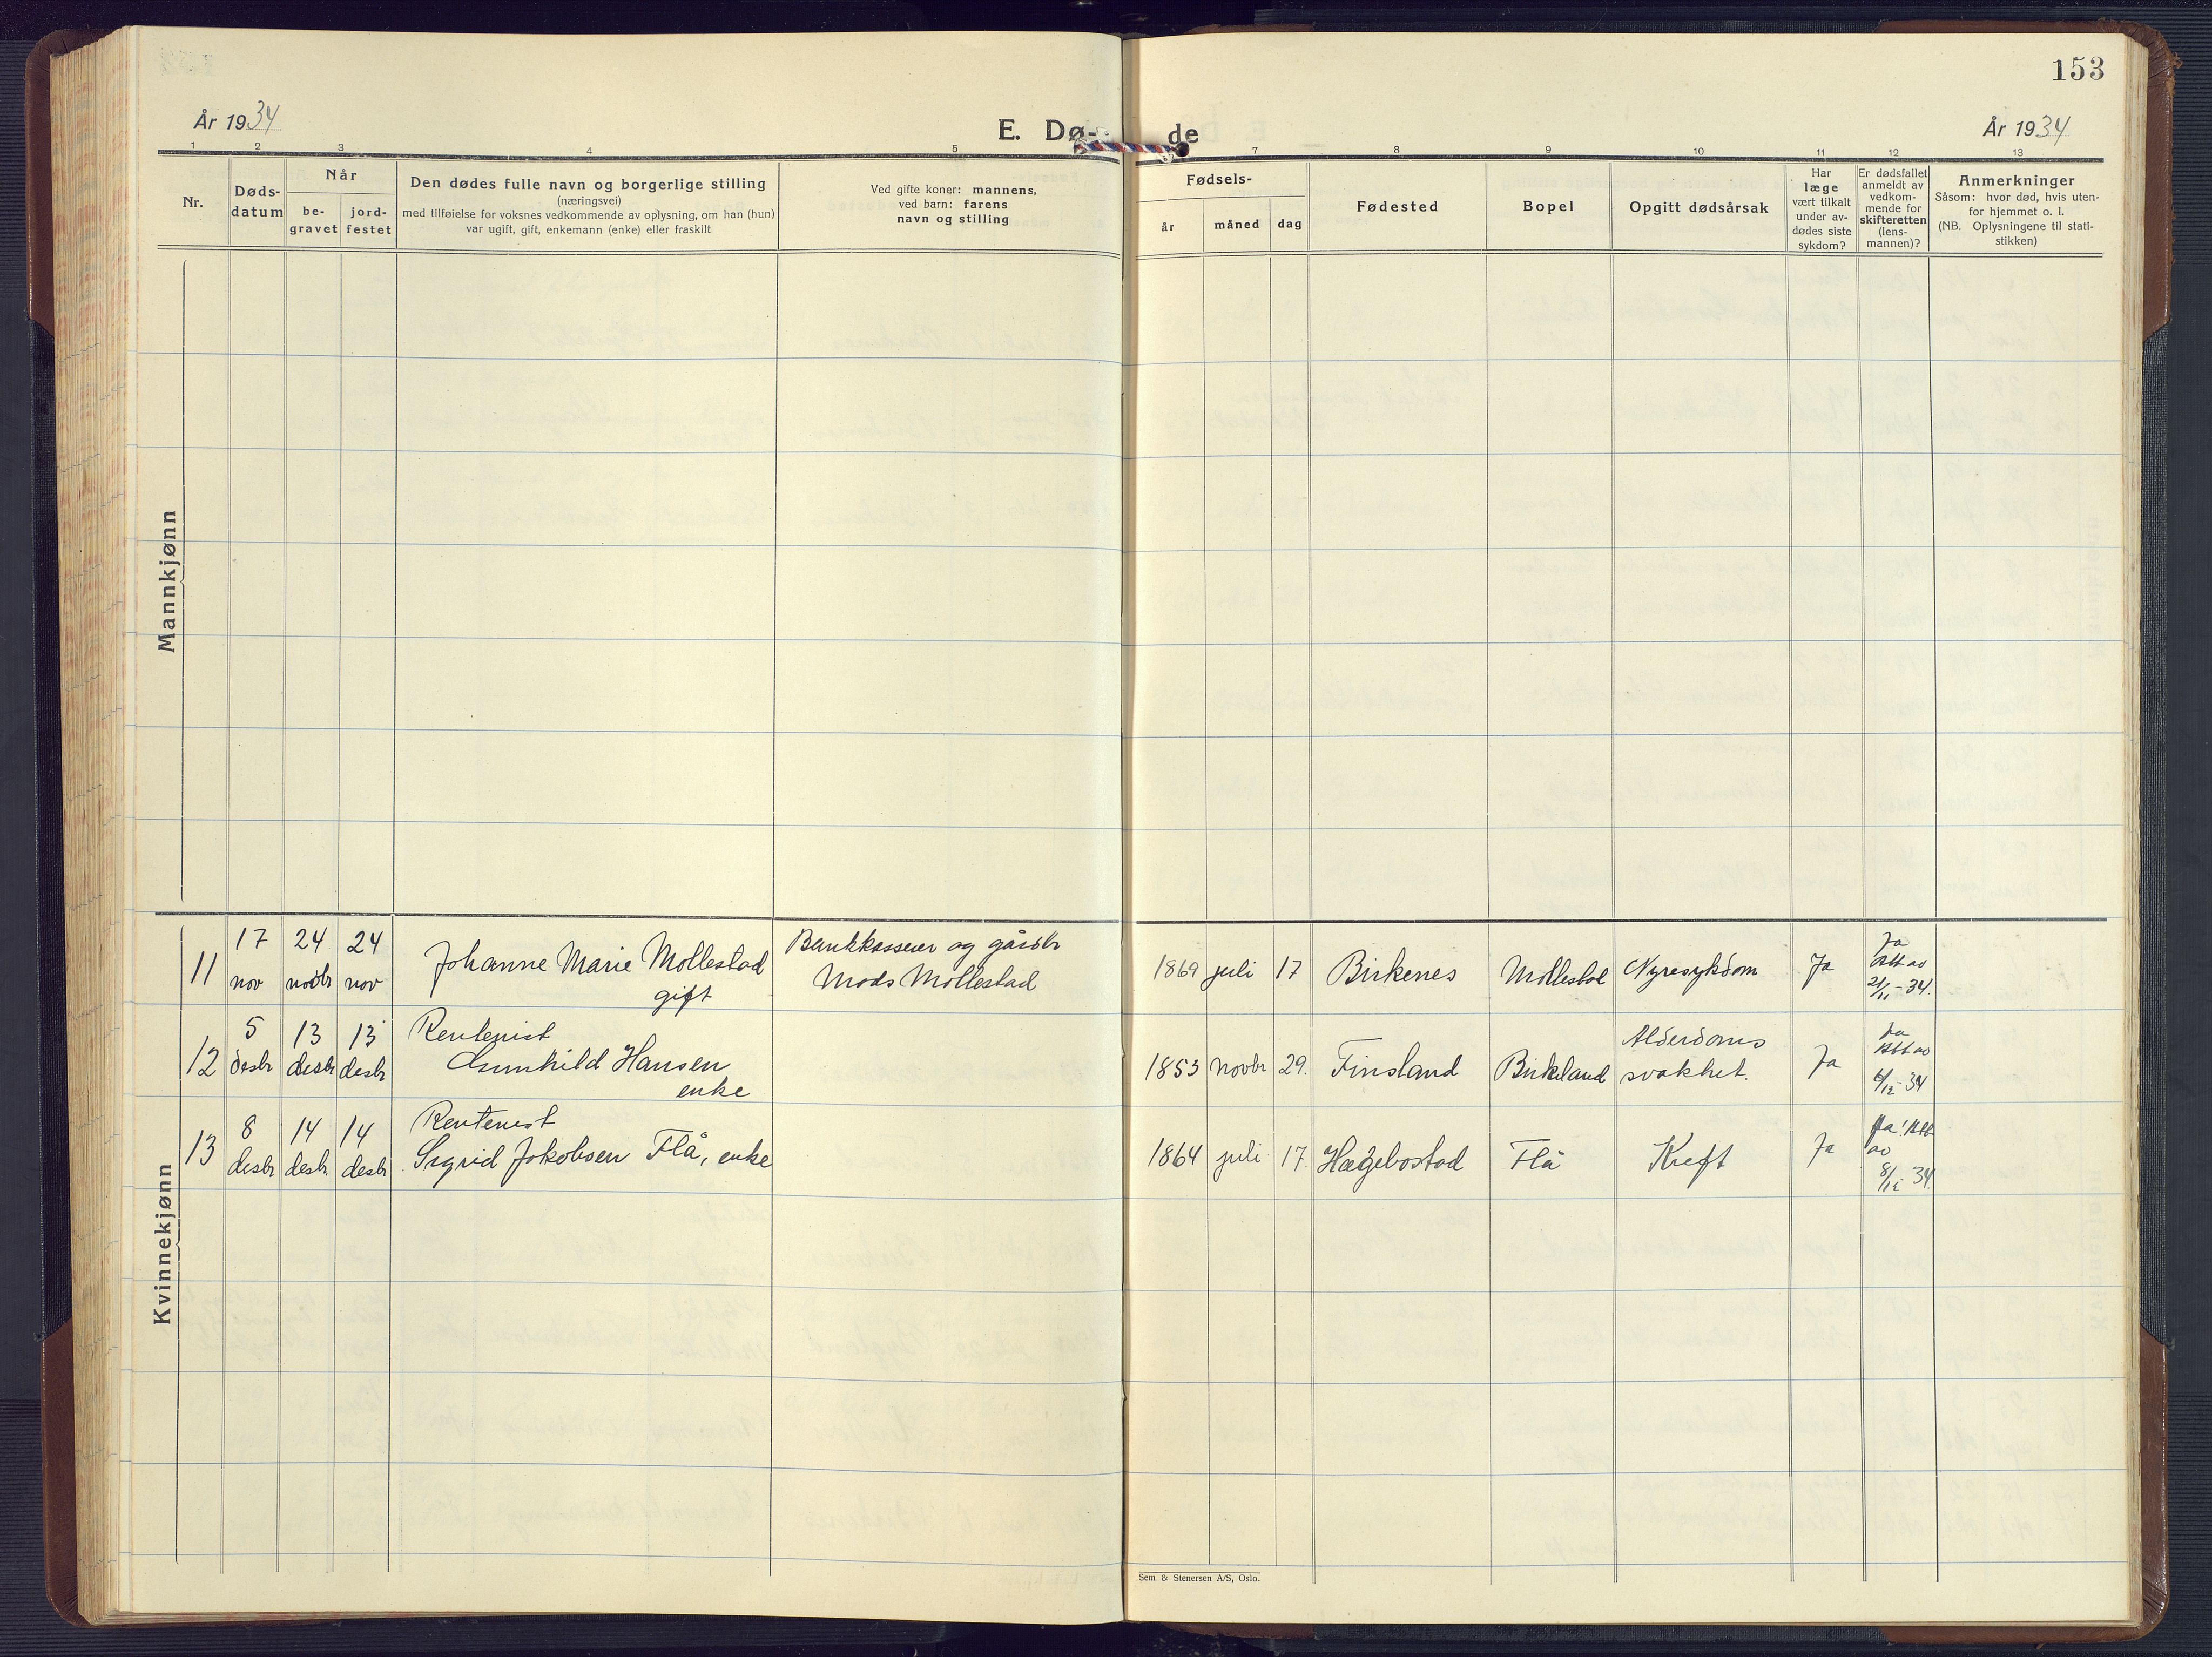 153
År 1934
E. Dø-
de
År 1934
1
2
3
4
5
7
8
9
10
11
12
13
Nr.
Døds-
datum
Når
be-
gravet
jord-
festet
Den dødes fulle navn og borgerlige stilling
(næringsvei)
med tilføielse for voksnes vedkommende av oplysning, om han (hun)
var ugift, gift, enkemann (enke) eller fraskilt
Ved gifte koner: mannens,
ved barn: farens
navn og stilling
Fødsels-
år
måned
dag
Fødested
Bopel
Opgitt dødsårsak
Har
læge
vært tilkalt
under av-
dødes siste
sykdom?
Er dødsfallet
anmeldt av
vedkom-
mende for
skifteretten
(lens-
mannen)?
Anmerkninger
Såsom: hvor død, hvis uten-
for hjemmet o. l.
(NB. Oplysningene til stati-
stikken)
Mannkjønn
Kvinnekjønn
11
17
nov
24
novbr
24
nov
Johanne Marie Mollestad
gift
Bankkasserer og gårdbr
Mads Mollestad
1869 juli 17 Birkenes Mollestad Nyresykdom Ja
Ja
Att av
21/11-34.
12
5
desbr
13
desbr
13
desbr
Rentenist
Gunhild Hansen
enke
1853 novbr 29. Finsland Birkeland
Alderdoms
svakhet.
Ja
Ja
Att av
6/12-34
13
8
desbr
14
desbr
14
desbr
Rentenist
Sigrid Jakobsen Flå, enke
1864 juli 17. Hægebostad Flå Kreft Ja
Ja! Att
av
8/12 34.
Sem & Stenersen A/S, Oslo.